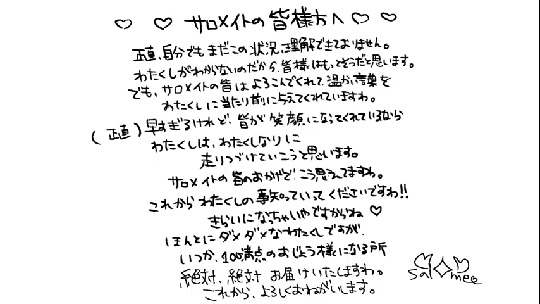 ♡ ♡ サロメイトの皆様方へ ♡ ♡
正直、自分でもまだこの状況、理解できておりません。
わたくしがわからないのだから、皆様はもっとそうだと思います。
でも、サロメイトの皆はよろこんでくれて、温かい言葉を
わたくしに当たり前に与えてくれていますわ。
(正直)早すぎるけれど、皆が笑顔になってくれているなら
わたくしは、わたくしなりに
走りつづけていこうと思います。
サロメイトの皆のおかげで、こう思えてますわ。
これからわたくしの事知っていってくださいですわ!!
きらいになっちゃいやですからね♡
ほんとにダメダメなわたくしですが、
いつか、100満点のおじょう様になる所
絶対、絶対お届けいたしますわ。
これから、よろしくおねがいします。
salomee